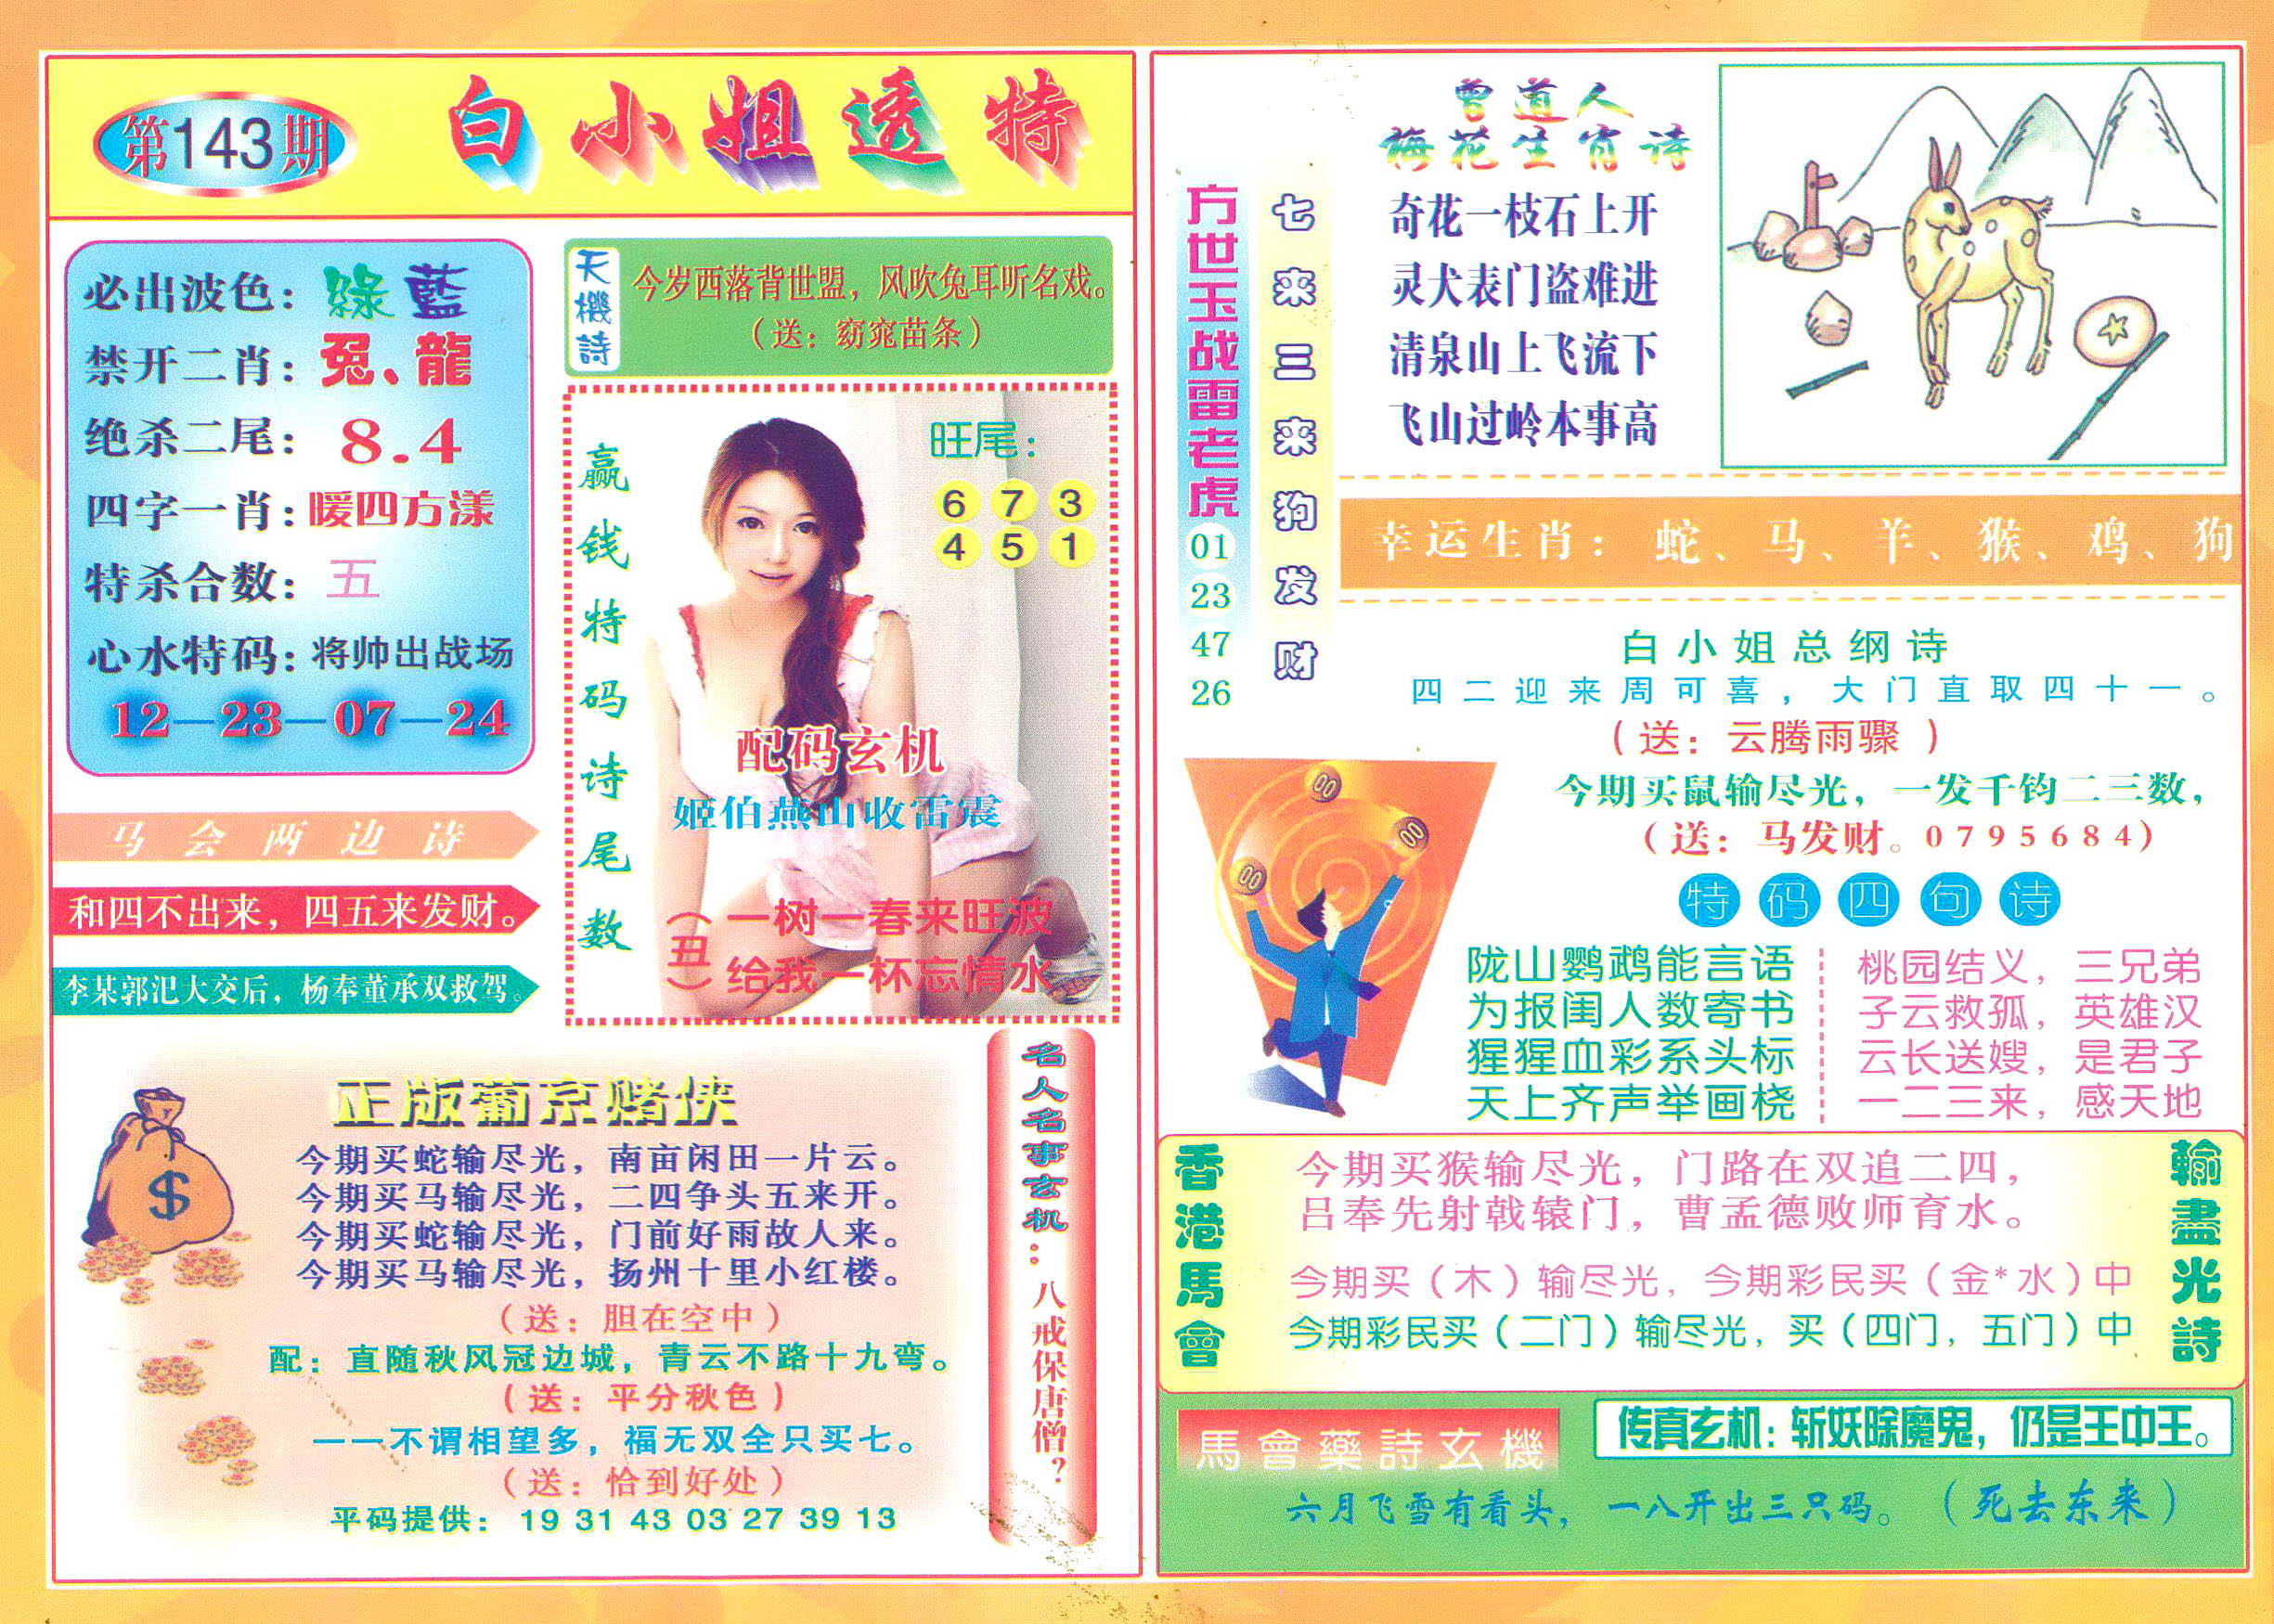 第143期
白小姐透特
必出波色：綠藍
禁开二肖：兔、龍
绝杀二尾：8.4
四字一肖：暖四方漾
特杀合数：五
心水特码：将帅出战场
12—23—07—24
马会两边诗
和四不出来，四五来发财。
李某郭汜大交后，杨奉董承双救驾。
天機詩
今岁西落背世盟，风吹兔耳听名戏。
（送：窈窕苗条）
赢钱特码诗尾数
旺尾：
6 7 3
4 5 1
配码玄机
姬伯燕山收雷震
（丑）
一树一春来旺波
给我一杯忘情水
正版葡京赌侠
今期买蛇输尽光，南亩闲田一片云。
今期买马输尽光，二四争头五来开。
今期买蛇输尽光，门前好雨故人来。
今期买马输尽光，扬州十里小红楼。
（送：胆在空中）
配：直随秋风冠边城，青云不路十九弯。
（送：平分秋色）
一一不谓相望多，福无双全只买七。
（送：恰到好处）
平码提供： 19 31 43 03 27 39 13
名人名事玄机…八戒保唐僧？
方世玉战雷老虎
01
23
47
26
七来三来狗发财
曾道人
梅花生肖诗
奇花一枝石上开
灵犬表门盗难进
清泉山上飞流下
飞山过岭本事高
幸运生肖：蛇、马、羊、猴、鸡、狗
白小姐总纲诗
四二迎来周可喜，大门直取四十一。
（送：云腾雨骤）
今期买鼠输尽光，一发千钧二三数，
（送：马发财。0795684）
特码四句诗
陇山鹦鹉能言语
为报闺人数寄书
猩猩血彩系头标
天上齐声举画桡
桃园结义，三兄弟
子云救孤，英雄汉
云长送嫂，是君子
一二三来，感天地
香港馬會
今期买猴输尽光，门路在双追二四，
吕奉先射戟辕门，曹孟德败师育水。
今期买（木）输尽光，今期彩民买（金*水）中
今期彩民买（二门）输尽光，买（四门，五门）中
輸盡光詩
馬會藥詩玄機
传真玄机：斩妖除魔鬼，仍是王中王。
六月飞雪有看头，一八开出三只码。（死去东来）